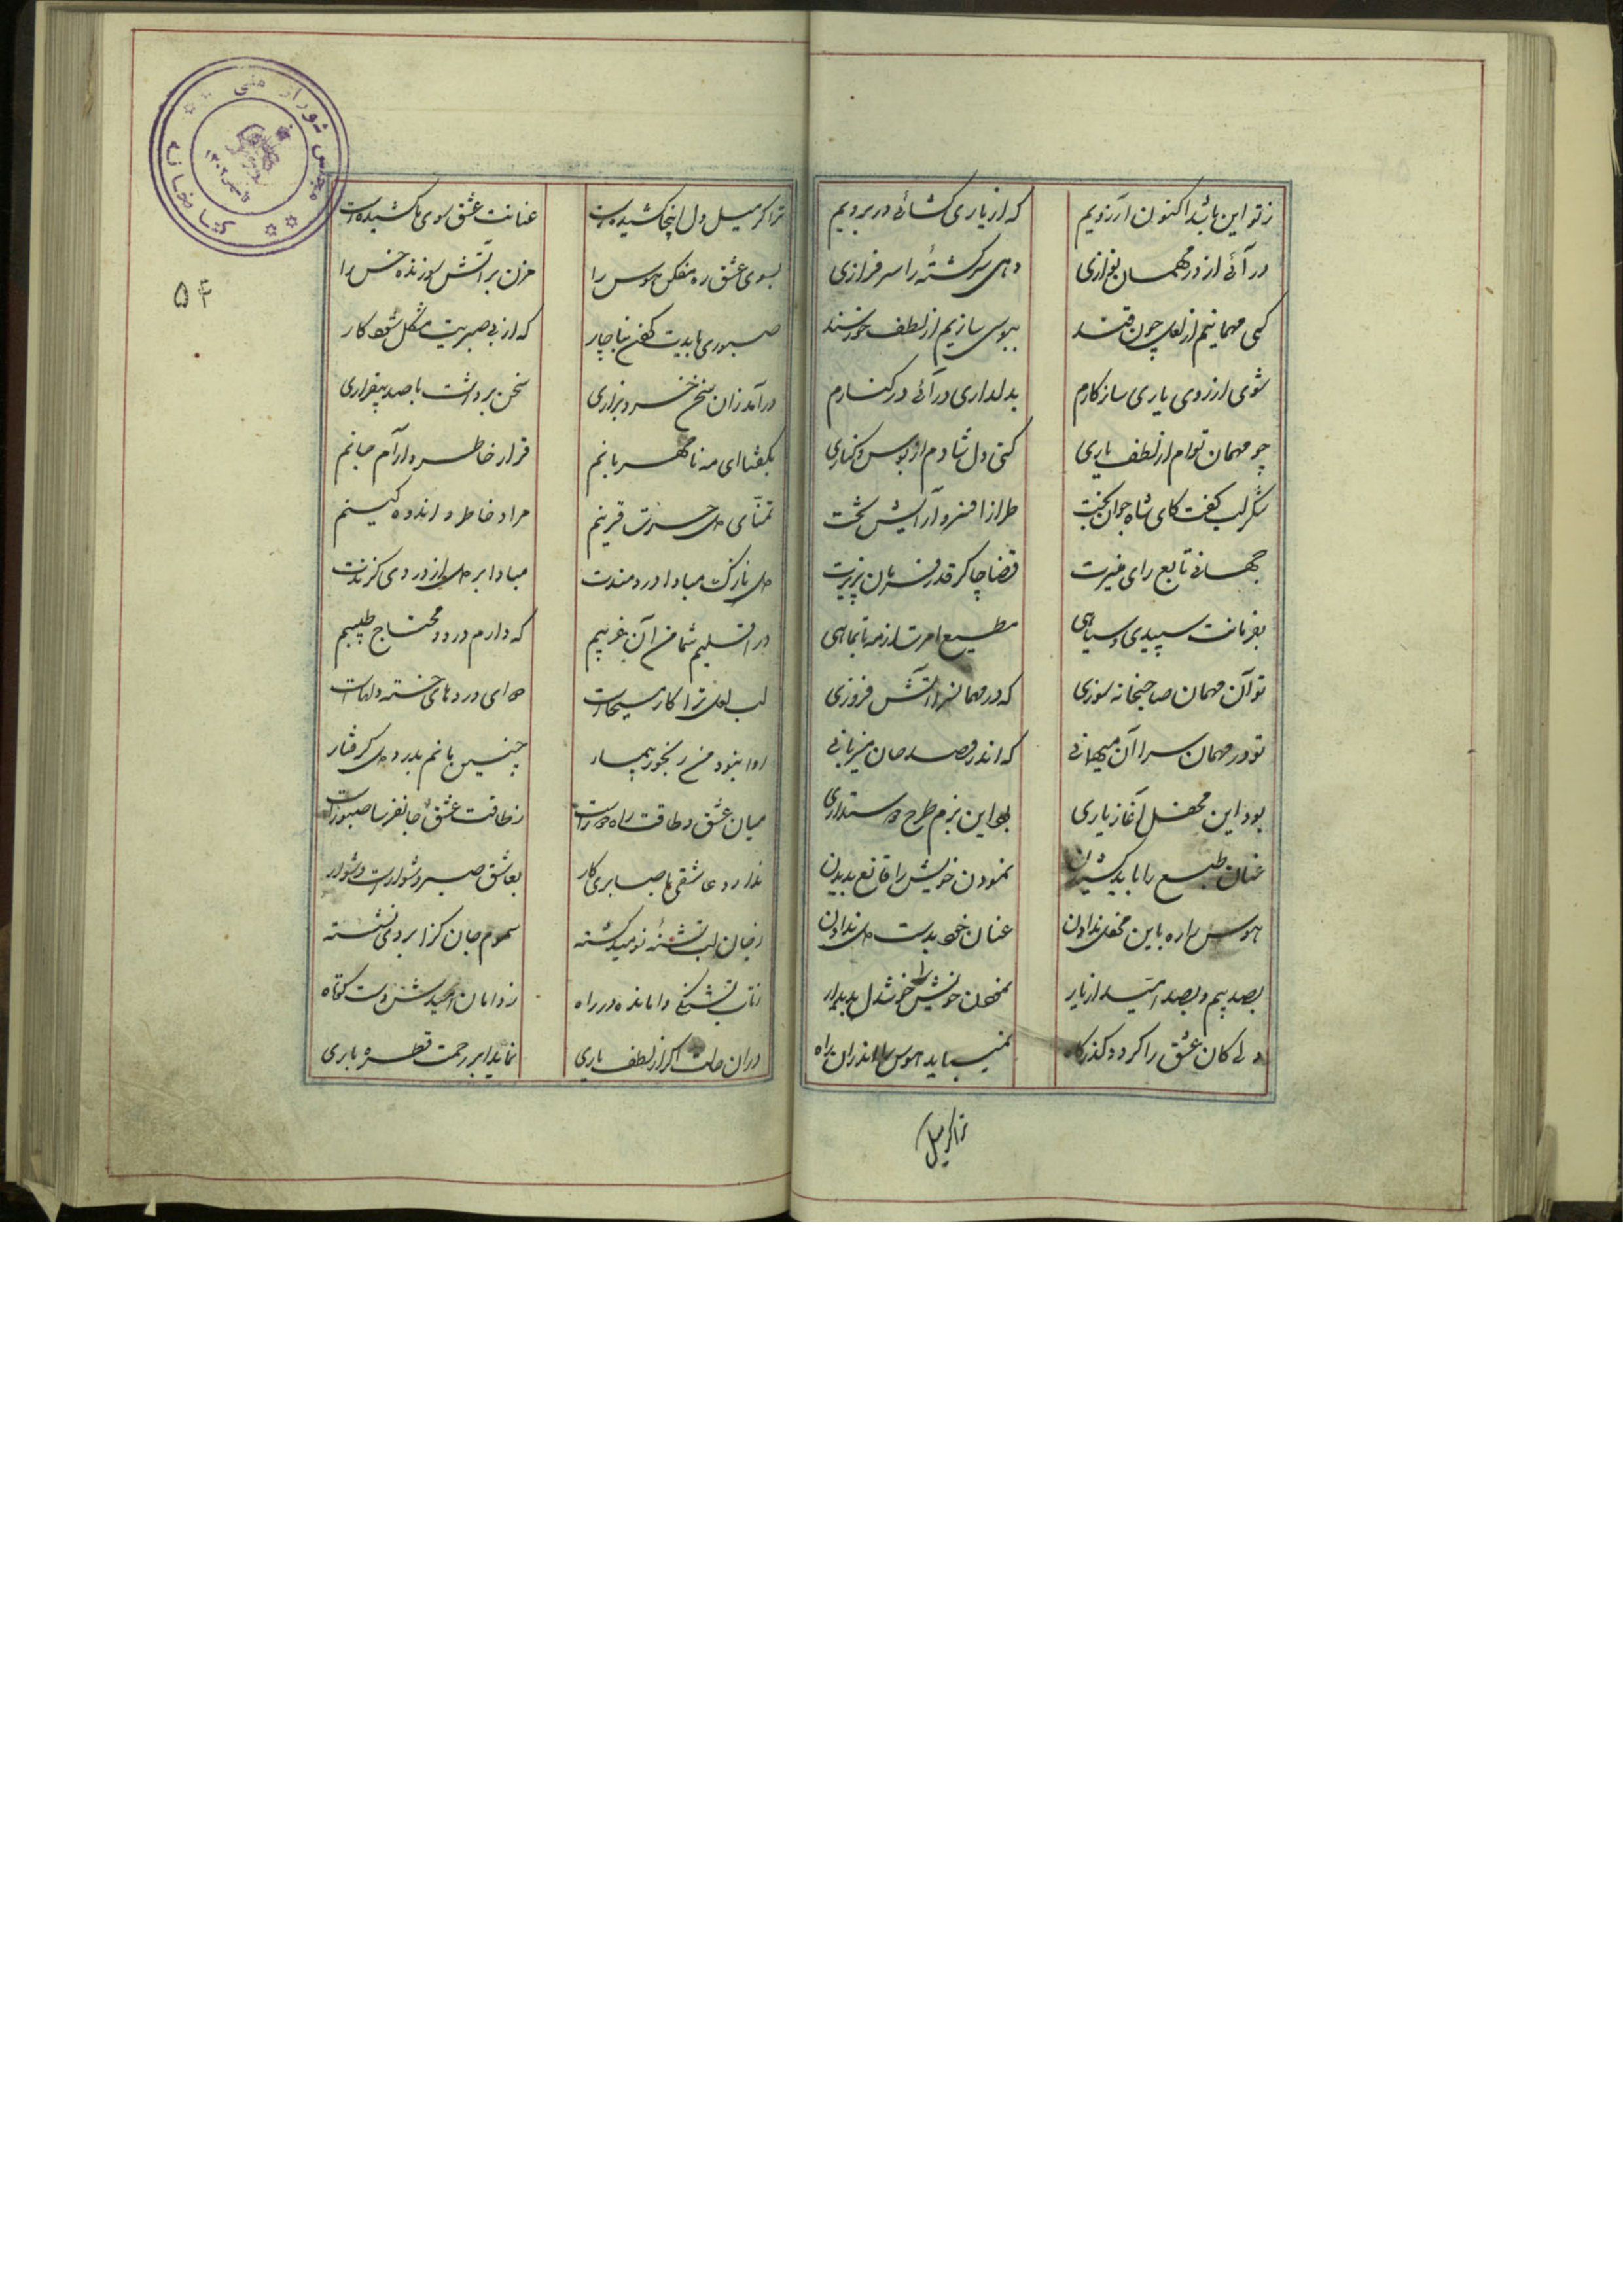 ز تو این باشد اکنون آرزویم که از یاری کشائی در برویم
در آئی از در مهمان نوازی دهی سرکشته را سرفرازی
کنی مهمانیم از لعل چون قند ببوسی سازیم از لطف خورسند
شوی از روی یاری سازکارم بدلداری درآئی در کنارم
چو مهمان توام از لطف یاری کنی دل شادم از بوس و کناری
شکر لب کفت کای شاه جوان بخت طراز افسر و آرایش تخت
جهانی تابع رای منیرت قضا چاکر قدر فرمان پذیرت
بفرمانت سپیدی و سیاهی مطیع امرت از مه تا بماهی
تو آن مهمان صاحبخانه سوزی که در مهمانسرا آتش فروزی
تو در مهمان سرا آن میهمانی که اندر قصد جان میزبانی
بود این محفل آغاز یاری بود این بزم طرح دوستداری
عنان طبع را باید کشیدن نمودن خویش را قانع بدیدن
هوس را ره باین محفل ندادن عنان خود بدست دل ندادن
بصد بیم و بصد امید از یار نمودن خویش را خوشدل بدیدار
دلی کان عشق را کردد کذرکاه نمیباید هوس را اندران راه
ترا کر میل
ترا کر میل دل اینجا کشیده است عنانت عشق سوی ما کشیده است
بسوی عشق ره مفکن هوس را مزن بر آتش سوزنده خس را
صبوری بایدت کفتن بناچار که از بی صبریت مشکل شود کار
درآمد زان سخن خسرو بزاری سخن برداشت با صد بیقراری
بکفتا ای مه نامهربانم قرار خاطر و آرام جانم
تمنای دل حسرت قرینم مراد خاطر و اندوه کینم
دل نازک مبادا دردمندت مبادا بر دل از دردی کزندت
در اقلیم شما من آن غریبم که دارم درد و محتاج طبیبم
لب لعل ترا کار مسیحاست دوای دردهای خسته دلهاست
روا نبود من رنجور بیمار چنین مانم بدرد دل کرفتار
میان عشق و طاقت راه دوراست ز طاقت عشق جانفرسا صبوراست
ندارد عاشقی با صابری کار بعاشق صبر دشواراست دشوار
ز جان لب تشنهٔ نومید کشته سموم جان کزا بروی نشسته
ز تاب تشنکی وامانده در راه ز دامان امیدش دست کوتاه
در ان حالت اکر از لطف یاری نماید ابر رحمت قطره باری
۵۴
کتابخانه مجلس شورای ملی